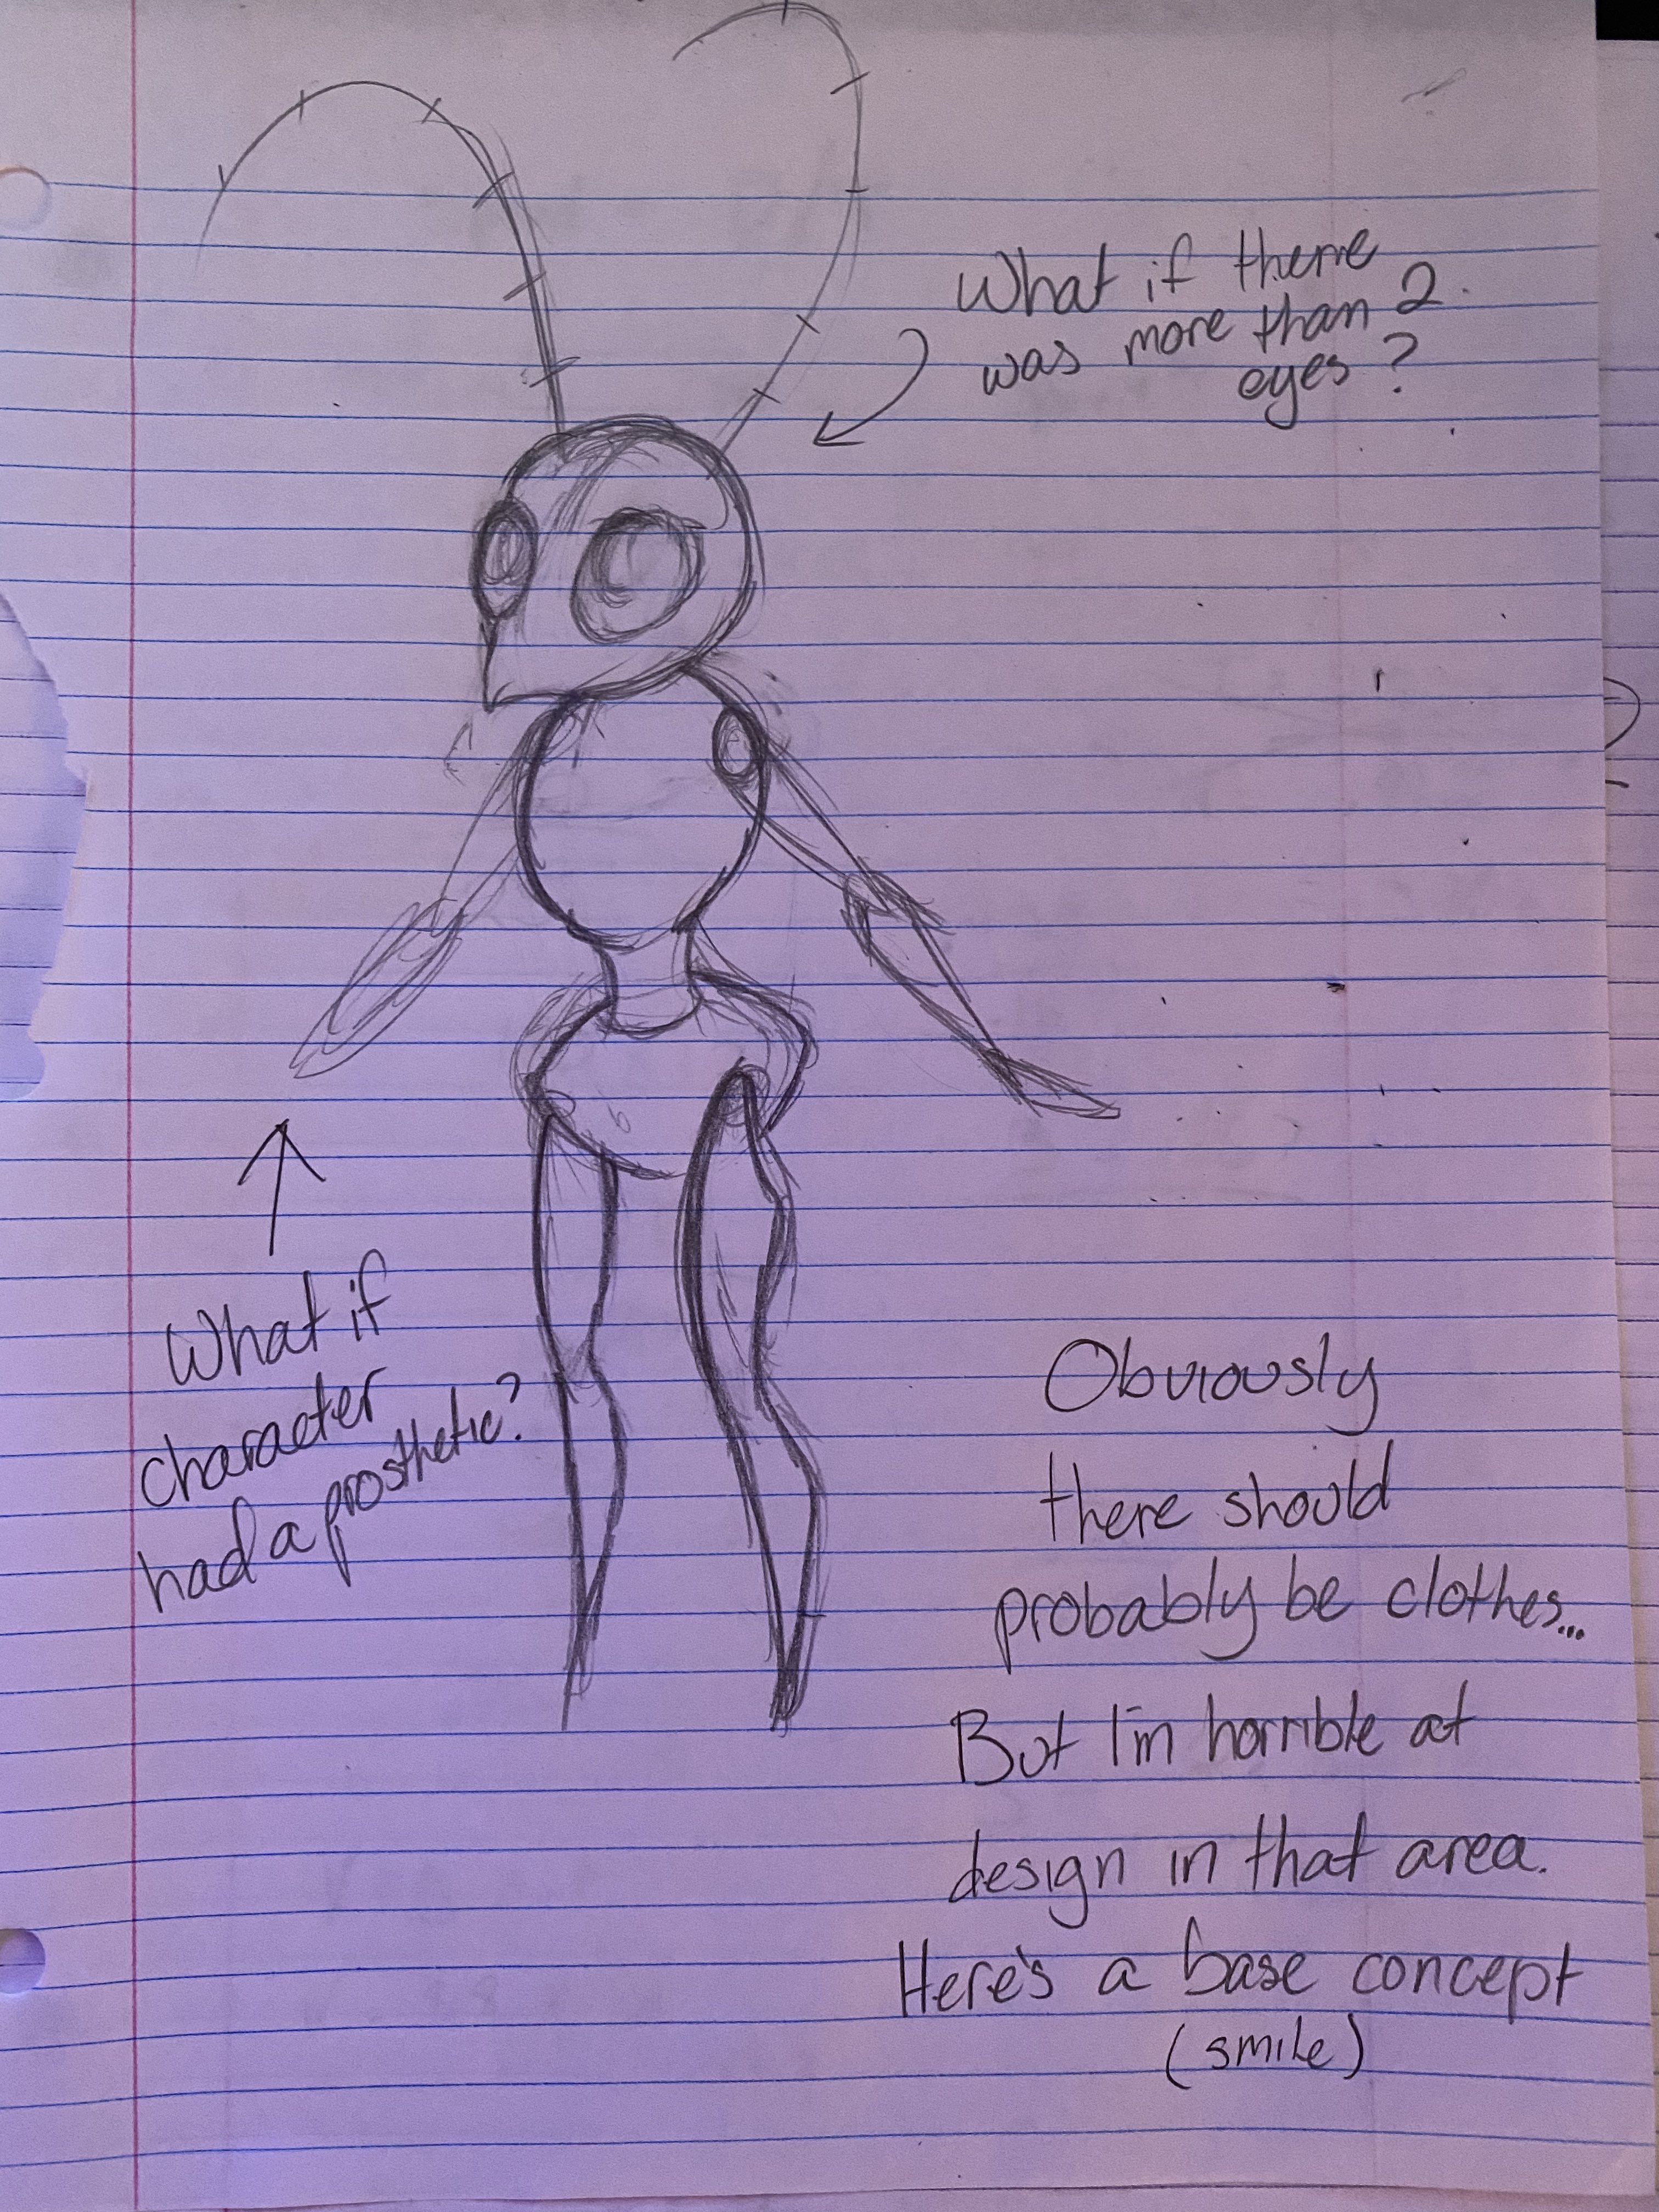 What if there
was more than 2
eyes?
What if
character
had a prosthetic?
Obviously
there should
probably be clothes...
But I'm horrible at
design in that area.
Here's a base concept
(smile)